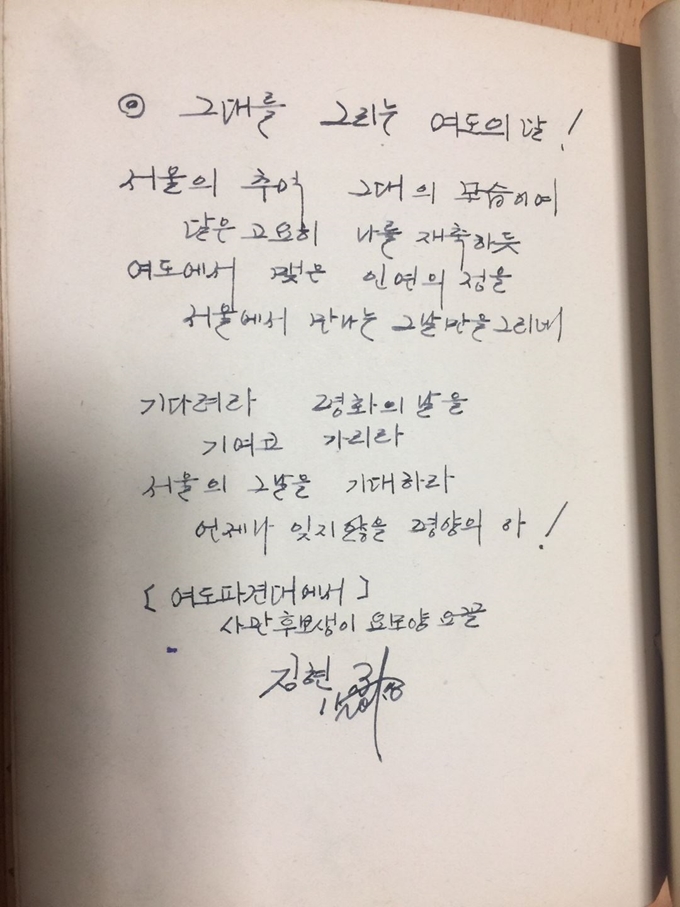 ◎ 그대를 그리는 여도의 달!
서울의 추억 그대의 모습이여
달은 고요히 나를 재촉하듯
여도에서 맺은 인연의 정을
서울에서 만나는 그날만을 그리네
기다려라 평화의 날을
기여코 가리라
서울의 그날을 기대하라
언제나 잊지않을 평양의 아!
[여도파견대에서]
사관후보생이 요모양 요꼴
김현